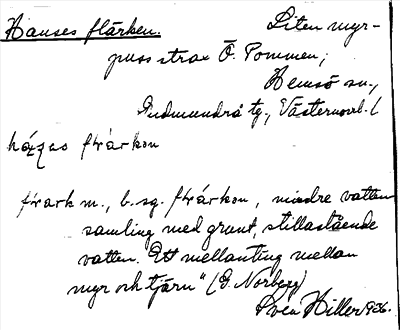 Hanses flärken. Liten myr-
puss strax Ö. Pommen;
Hemsö sn.,
Gudmundrå tg., Västernorrl. l
flark m., b. sg. , mindre vatten
samling med grunt, stillastående
vatten. Ett mellanting mellan
myr och tjärn" (E. Norberg)
Sven Hiller 1936.